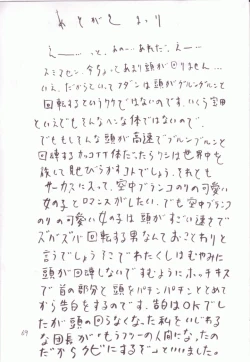 あとがき まがり
えー……、と、あの…あれだ、えー…
スミマセン、今ちょっとあまり頭が回りません……
いえ、だからといってフダンは頭がグルングルンと
回転するというワケではないのです、いくら富田
といえどもそんなヘンな体ではないので、
でももしそんな頭が高速でグルングルンと
回転する カッコイイ体だったらワシは世界中を
旅して見せびらかすコトでしょう、それとも
サーカスに入って、空中ブランコのりの可愛い
女の子とロマンスがしたい、でも空中ブランコ
のりの可愛い女の子は頭がすごい速さで
ズバズバ回転する男なんておことわりと
言うでしょう?そこでわたくしはむやみに
頭が回転しないですむようにホッチキス
で首の部分と頭をパチンパチンととめて
から告白をするのです、告白はOKでし
たが頭の回らなくなった私をいじわる
な団長が、もうフツーの人間になったの
だからクビにするゾ、といいました。
69